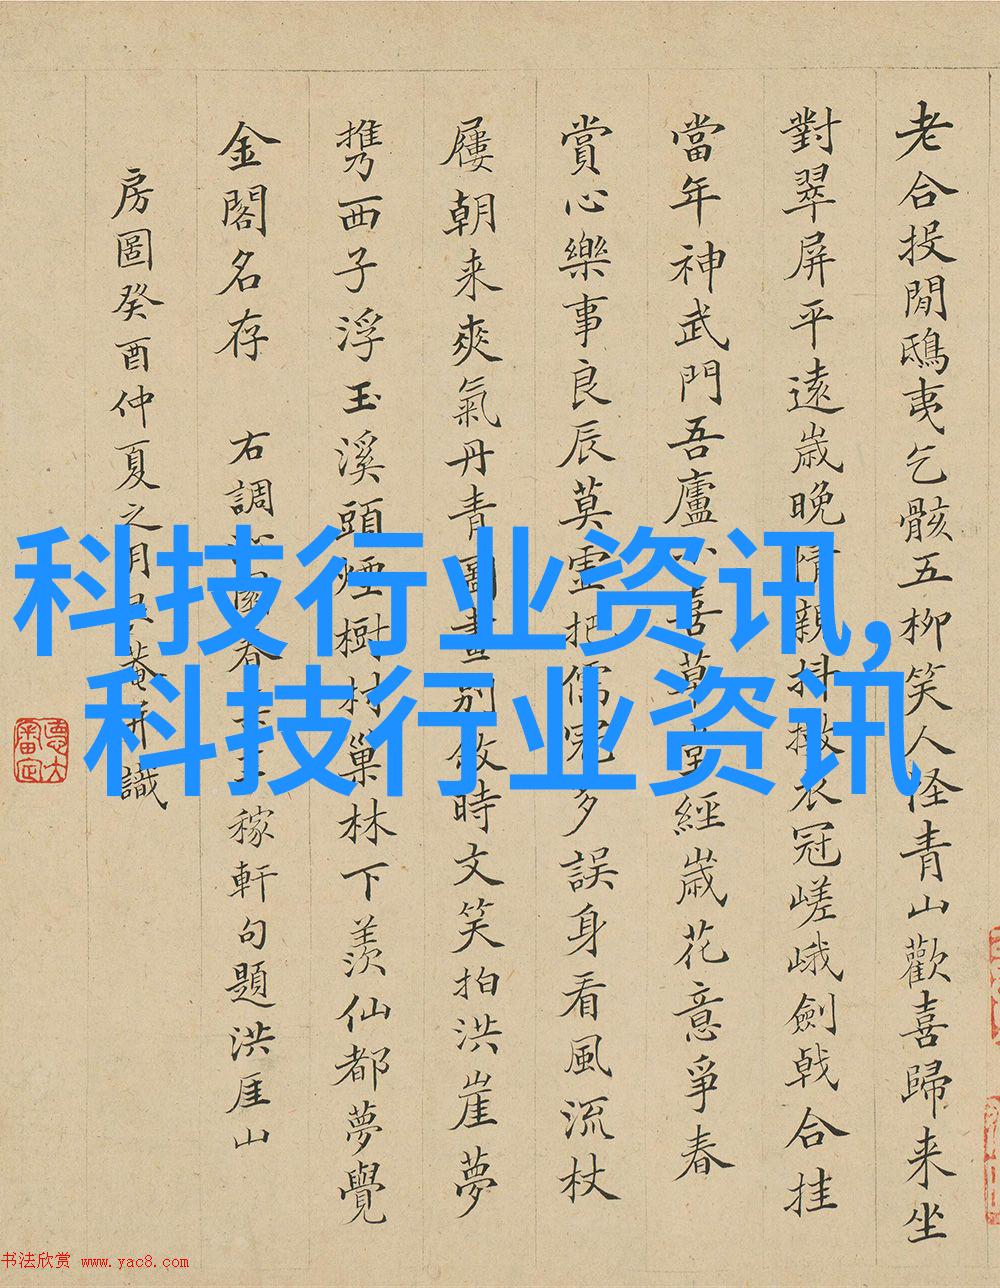 老合投閒鴟夷乞骸五柳笑人怪青山歡喜歸来坐
對翠屏平遠歲晚情親抖擻衣冠嵯峨劍戟合挂
當年神武門吾廬小喜草堂經歲花意爭春
賞心樂事良辰莫虛把儒冠多誤身看風流杖
屨朝来爽氣丹青圖畫別做時文笑拍洪崖夢
携西子浮玉溪頭煙樹村巢林下羨仙都夢覺
金閣名存
右調 園春 稼軒句題洪厓山
房圖癸酉仲夏之月 菴并識
科技行业资讯,
科技行业资讯
书法欣赏 www.yac8.com